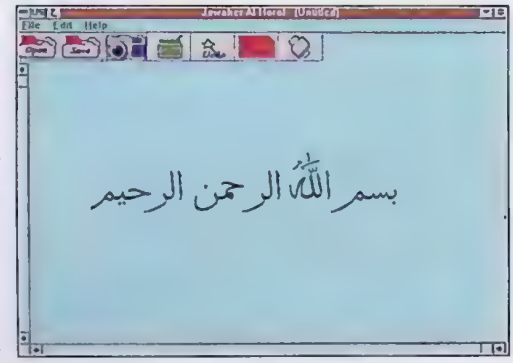 Jawaker Al Horof (Untitled)
File Edit Help
Open Save Undo
بسم الله الرحمن الرحيم